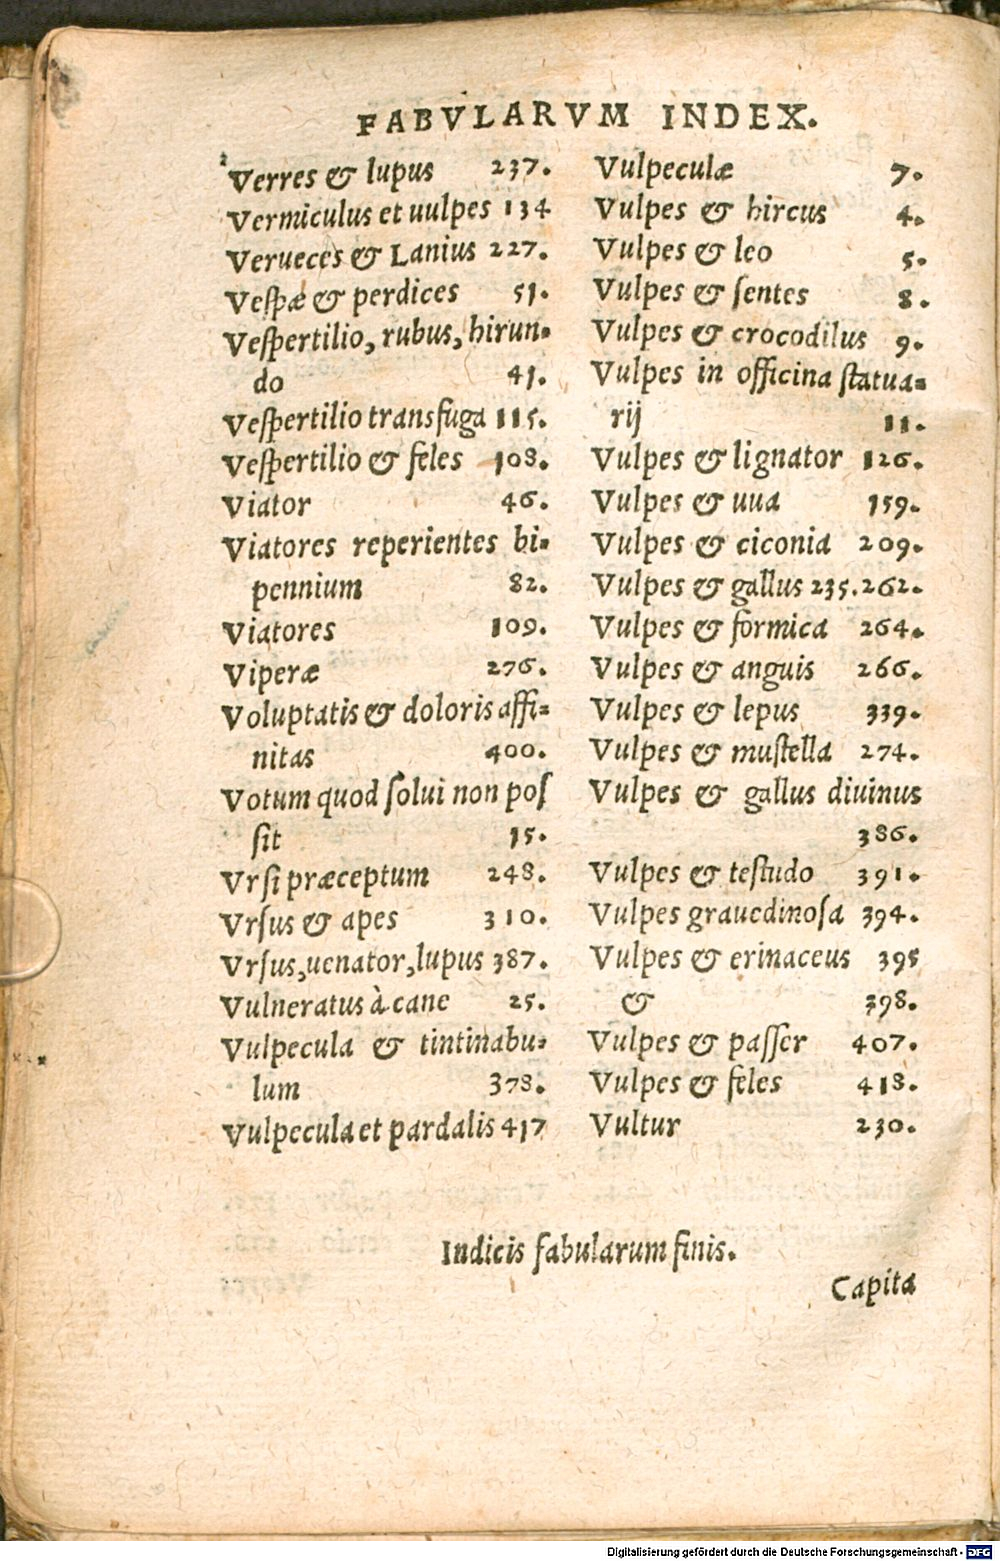 FABVLARVM INDEX.
Verres & lupus 237.
Vermiculus et uulpes 134
Verueces & Lanius 227.
Vespæ & perdices 51.
Vespertilio, rubus, hirun-
do 41.
Vespertilio transfuga 115.
Vespertilio & feles 108.
Viator 46.
Viatores reperientes bi-
pennium 82.
Viatores 109.
Viperæ 276.
Voluptatis & doloris affi-
nitas 400.
Votum quod solui non pos
sit 15.
Vrsi præceptum 248.
Vrsus & apes 310.
Vrsus, uenator, lupus 387.
Vulneratus à cane 25.
Vulpecula & tintinabu-
lum 378.
Vulpecula et pardalis 417
Vulpeculæ 7.
Vulpes & hircus 4.
Vulpes & leo 5.
Vulpes & sentes 8.
Vulpes & crocodilus 9.
Vulpes in officina statua-
rij 11.
Vulpes & lignator 126.
Vulpes & uua 159.
Vulpes & ciconia 209.
Vulpes & gallus 235.262.
Vulpes & formica 264.
Vulpes & anguis 266.
Vulpes & lepus 339.
Vulpes & mustella 274.
Vulpes & gallus diuinus
386.
Vulpes & testudo 391.
Vulpes grauedinosa 394.
Vulpes & erinaceus 395
& 398.
Vulpes & passer 407.
Vulpes & feles 418.
Vultur 230.
Indicis fabularum finis.
Capita
Digitalisierung gefördert durch die Deutsche Forschungsgemeinschaft - DFG